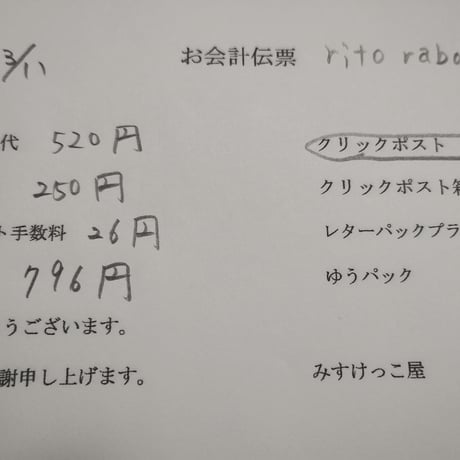 3/11 お会計伝票 rito rabo
代 520円 クリックポスト
250円 クリックポスト箱
ト手数料 26円 レターパックプラ
796円 ゆうパック
うございます。
謝申し上げます。 みすけっこ屋